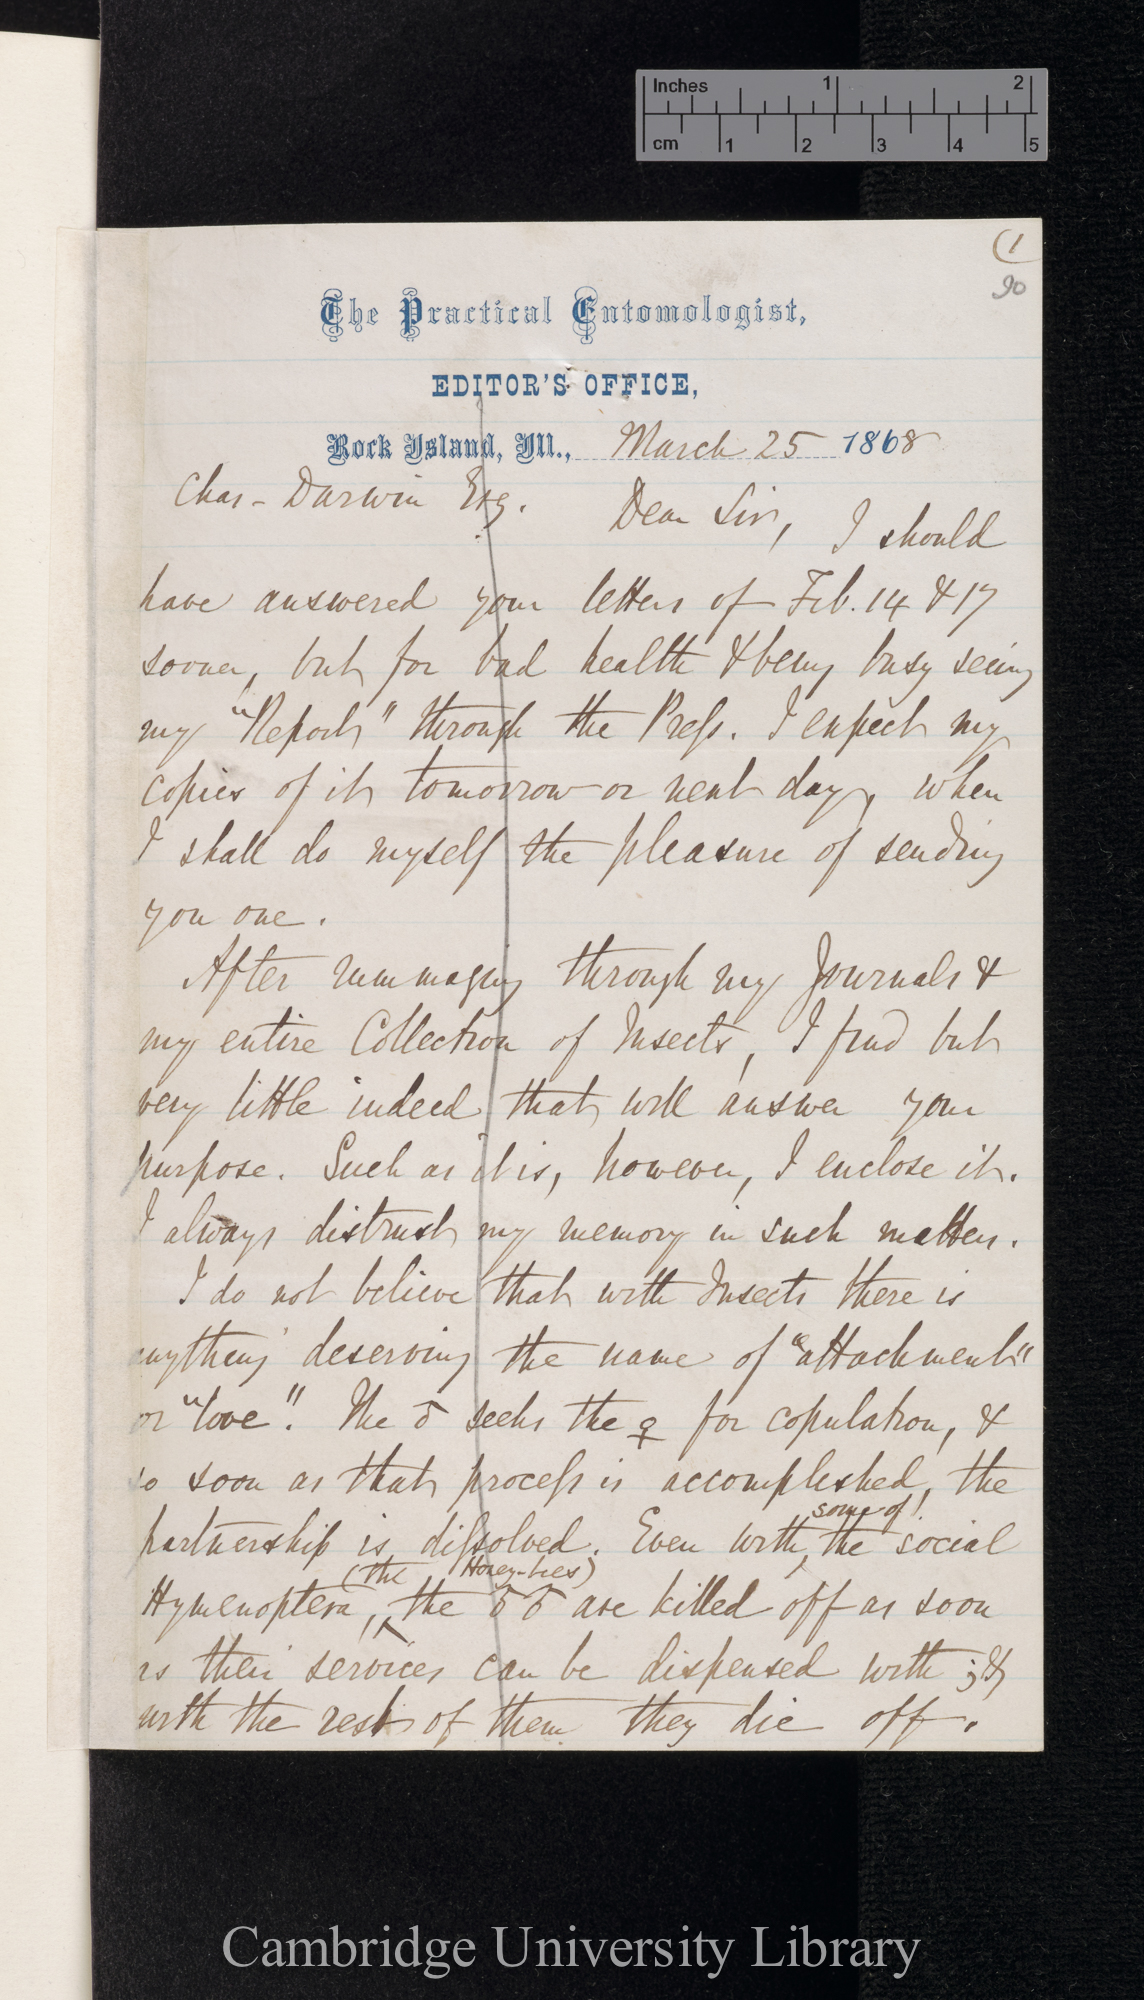 Inches 1 2
cm 1 2 3 4 5
(1
90
The Practical Entomologist,
EDITOR'S OFFICE,
Rock Island, Ill., March 25 1868
Chas. Darwin Esq. Dear Sir, I should
have answered your letters of Feb. 14 & 17
sooner, but for bad health & being busy seeing
my "Report" through the Press. I expect my
copies of it tomorrow or next day, when
I shall do myself the pleasure of sending
you one.
After rummaging through my Journals &
my entire Collection of Insects, I find but
very little indeed that will answer your
purpose. Such as it is, however, I enclose it.
I always distrust my memory in such matters.
I do not believe that with Insects there is
anything deserving the name of "attachment"
or "love". The ♂ seeks the ♀ for copulation, &
so soon as that process is accomplished, the
partnership is dissolved. Even with some of! the social
Hymenoptera, (the Honey-bees) the ♂♂ are killed off as soon
as their services can be dispensed with; &
with the rest of them they die off.
Cambridge University Library